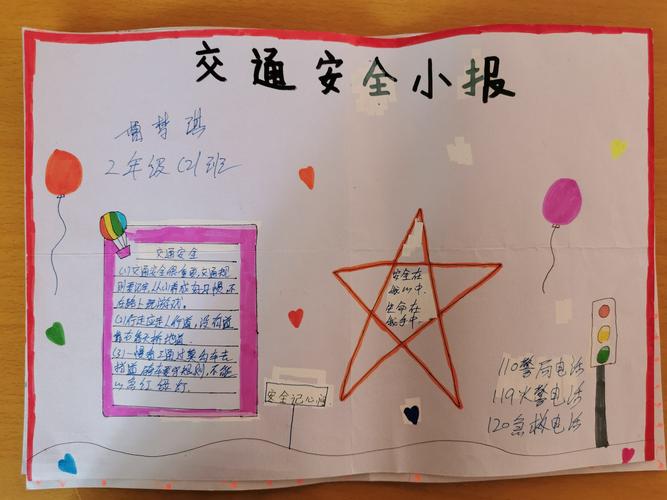 交通安全小报
梦琪
2年级(2)班
交通安全
(1)交通安全很重要,交通规
则要记牢,从小养成好习惯,不
在路上玩游戏。
(2)行走应走人行道,没有道
(3)一慢看二通过莫与车去
抢道 规则,不能
红绿灯.
安全在
我心中.
生命在
我手中.
安全记心间
110警局电话
119火警电话
120急救电话